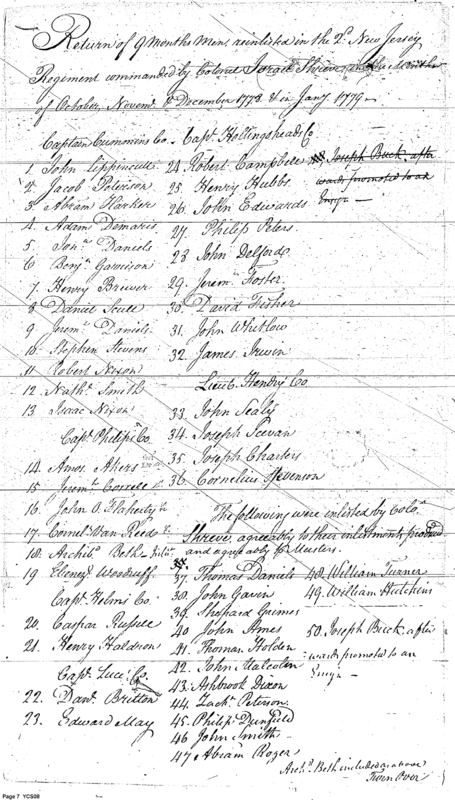 Return of 9 Months Men, reinlisted in the 2d. New Jersey
Regiment commanded by Colonel Israel Shreve, in the Months
of October, Novemr. & December 1778 & in Jany 1779 —
Captain Cummins Co —
1. John Lippincutt
2. Jacob Peterson
3 Abram Harker
4. Adam Demaris
5. Jona. Daniels
6 Benjn. Garrison
7. Henry Brewer
8 Daniel Scull
9 Jeremh. Daniels
10. Stephen Stevens
11. Robert Nixon
12 Nathl. Smith
13 Isaac Nixon
Capt. Philips Co.
14. Amos Akers
15 Jeremh. Correll
16. John O. Flaherty
17. Cornels. Van Reed
18. Archibd. Beth
19 Ebenezr. Woodruff
Capt. Helms Co.
20. Caspar Russell
21. Henry Haldron
Capt. Luce Co.
22. Danl. Britton
23. Edward May
Capt. Hollingsheads Co
24. Robert Campbell
25. Henry Hubbs
26. John Edwards
27. Philip Peters
28 John Delford
29. Jeremh. Foster
30. David Fisher
31. John Whitlow
32. James Irwin
Lieut. Hendry Co
33. John Sealy
34. Joseph
35. Joseph Charters
36. Cornelius Stevenson
Joseph Buck, after
wards promoted to an
Ensign —
The following were enlisted by Colo.
Shreve, agreeably to their inlistments produced
and agreeably to Musters.
37. Thomas Daniels
38. John Gavin
39. Sheppard Grimes
40 John Ames
41. Thomas Holden
42. John Malcolm
43. Ashbrook Dixon
44. Zachh. Peterson
45. Philip Dunfield
46 John Smith
47 Abram Roger
48. William Turner
49. William Hutchins
50. Joseph Buck, after
wards promoted to an
Ensign —
Archd. Beth included as above
Turn Over
Page 7 YCS08